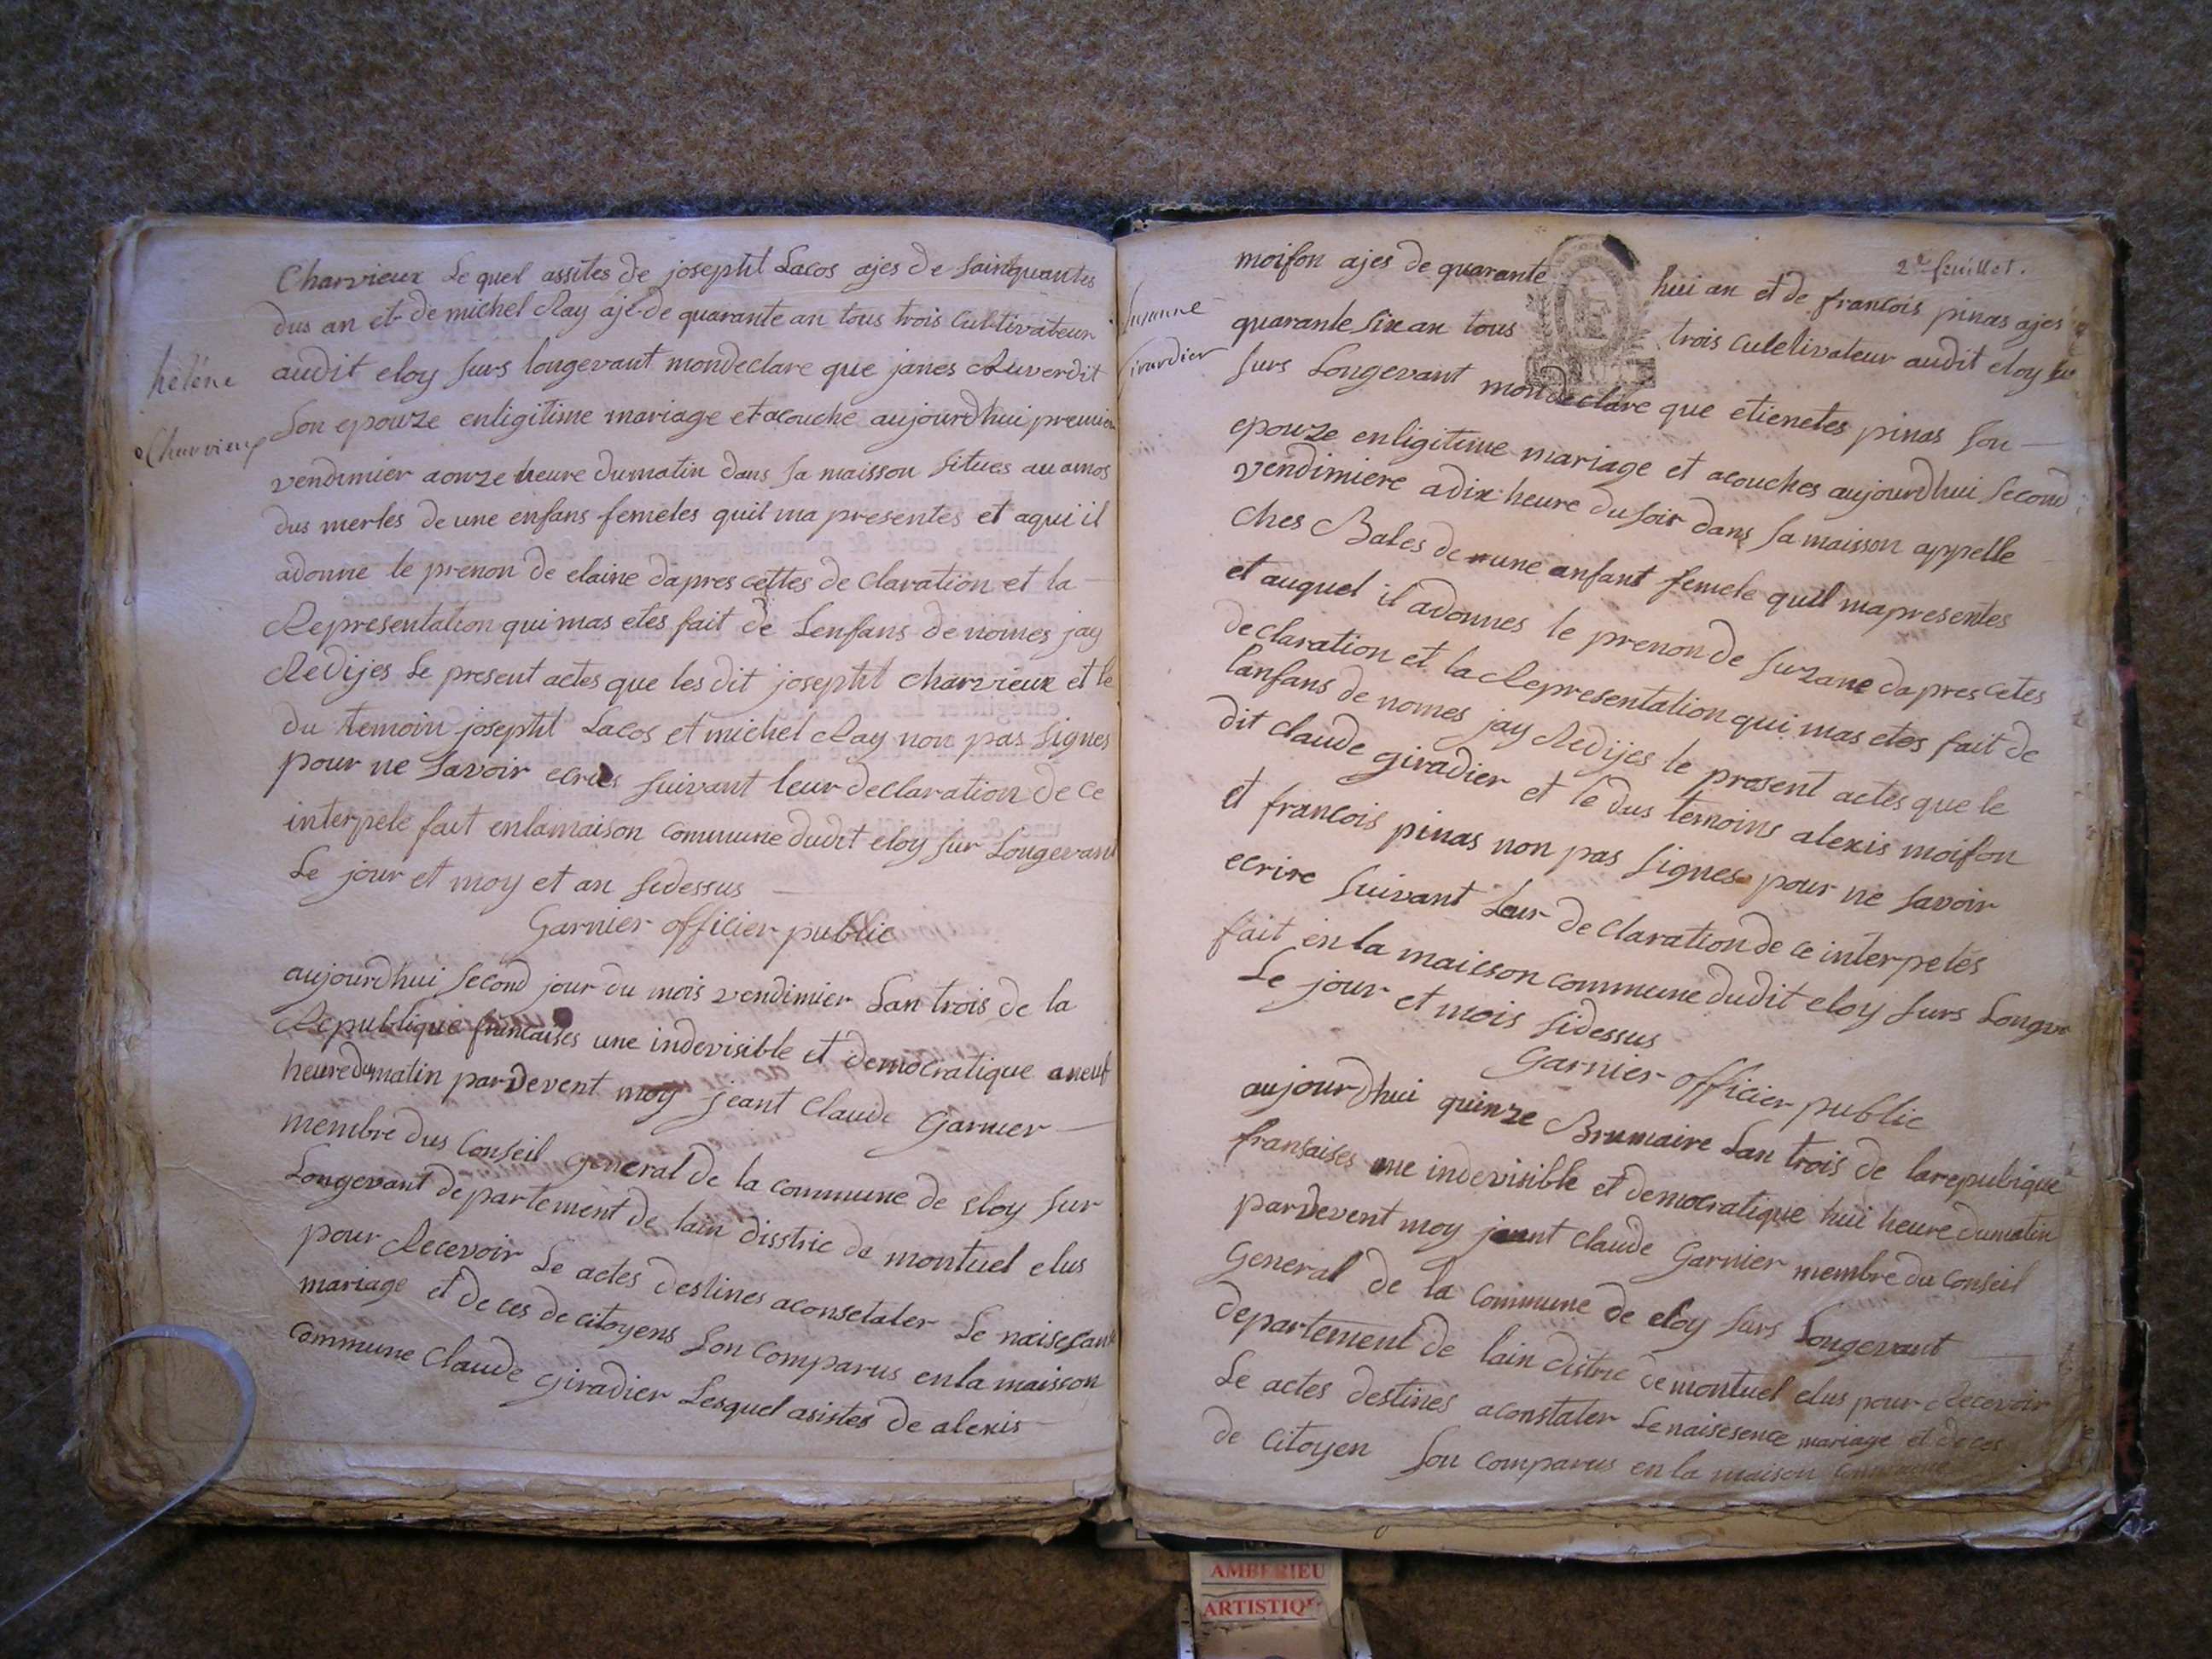 Charvieux Le quel assites de josephtl Lacos ajes de Sainquantes
dus an et de michel Ray aje de quarante an tous trois Cultivateur
audit eloy Surs longevant mondeclare que janes Ruverdit
hélène
Son epouze enligitime mariage et acouche aujourdhui premier
Charvieux
vendimier aonze heure dumatin dans Sa maisson Situes au amos
dus merles de une enfans femeles quil ma presentes et aqui il
adonne le prenon de elaine dapres cettes de Claration et la
Representation qui mas etes fait de Lenfans de nomes jay
Redijes Le present actes que les dit josephtl Charvieux et le
du temoin josephtl Lacos et michel Ray non pas Signes
pour ne Savoir ecries Suivant leur declaration de ce
interpele fait enlamaison Commune dudit eloy Sur Longevant
Le jour et moy et an Sidessus
Garnier officier public
aujourdhui Second jour du mois vendimier Lan trois de la
Republique francaises une indevisible et democratique aneuf
heure dumatin pardevent moy jeant Claude Garnier
membre dus Conseil general de la commune de eloy Sur
Longevant departement de lain disstric de montuel elus
pour Recevoir Le actes destines aconsetater Le naisesance
mariage et de ces de citoyens Son Comparus enla maisson
Commune Claude Giradier Lesquel asistes de alexis
2e feuillet.
moifon ajes de quarante hui an et de francois pinas ajes
Suzanne
quarante Six an tous trois culetivateur audit eloy
Girardier
Surs Longevant mondeclare que etienetes pinas Son
epouze enligitime mariage et acouches aujourdhui Second
vendimiere adix heure du Soir dans Sa maisson appelle
Ches Bales de une anfant femele quil mapresentes
et auquel il adonnes le prenon de Suzane dapres cetes
declaration et la Representation qui mas etes fait de
lanfans de nomes jay Redijes le present actes que le
dit Claude giradier et le dus temoins alexis moifon
et francois pinas non pas Signes pour ne Savoir
ecrire Suivant Leur de Claration de ce interpetes
fait enla maisson commune dudit eloy Surs Longev
Le jour et mois Sidessus
Garnier officier public
aujourdhui quinze Brumaire Lan trois de larepubique
fransaises une indevisible et democratique hui heure dumatin
pardevent moy jeant Claude Garnier membre du Conseil
General de la Commune de eloy Surs Longevant
departement de lain distric de montuel elus pour Recevoir
Le actes destines aconstater Le naisesence mariage et deces
de Citoyen Son Comparus en la maison Commune
AMBERIEU
ARTISTIQ